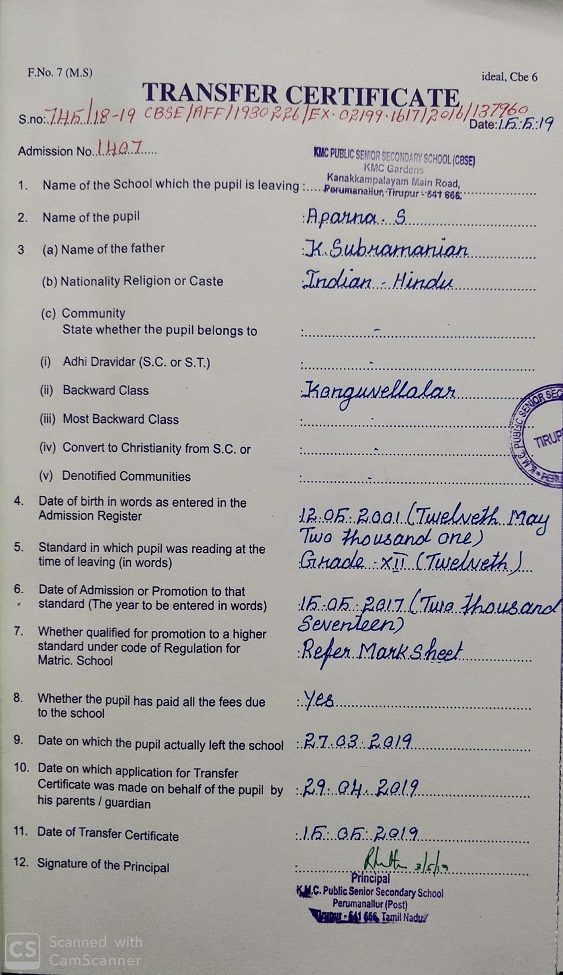 F.No. 7 (M.S)
ideal, Cbe 6
TRANSFER CERTIFICATE
S.no: 745/18-19 CBSE/AFF/1930226/EX-02199-1617/2016/137960
Date: 15.5.19
Admission No. 1407
KMC PUBLIC SENIOR SECONDARY SCHOOL (CBSE)
KMC Gardens
Kanakkampalayam Main Road,
Perumanallur, Tirupur - 641 666.
1. Name of the School which the pupil is leaving :
2. Name of the pupil : Aparna. S
3 (a) Name of the father : K. Subramanian
(b) Nationality Religion or Caste : Indian - Hindu
(c) Community
State whether the pupil belongs to : -
(i) Adhi Dravidar (S.C. or S.T.) : -
(ii) Backward Class : Konguvellalar
(iii) Most Backward Class : -
(iv) Convert to Christianity from S.C. or : -
(v) Denotified Communities : -
4. Date of birth in words as entered in the
Admission Register : 12.05.2001 (Twelveth May
Two thousand one)
5. Standard in which pupil was reading at the
time of leaving (in words) : Grade - XII (Twelveth)
6. Date of Admission or Promotion to that
standard (The year to be entered in words) : 15.05.2017 (Two thousand
Seventeen)
7. Whether qualified for promotion to a higher
standard under code of Regulation for
Matric. School : Refer Mark Sheet
8. Whether the pupil has paid all the fees due
to the school : Yes
9. Date on which the pupil actually left the school : 27.03.2019
10. Date on which application for Transfer
Certificate was made on behalf of the pupil by
his parents / guardian : 29.04.2019
11. Date of Transfer Certificate : 15.05.2019
12. Signature of the Principal :
Principal
K.M.C. Public Senior Secondary School
Perumanallur (Post)
Tirupur - 641 666, Tamil Nadu.
CS Scanned with
CamScanner